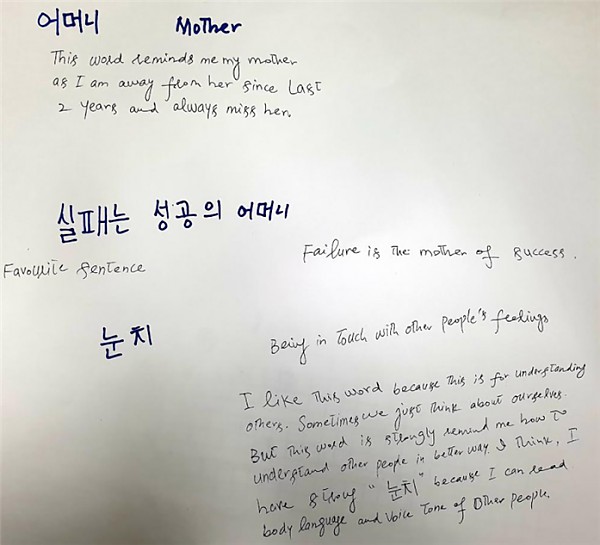 어머니 Mother
This word reminds me my mother
as I am away from her since Last
2 years and always miss her.
실패는 성공의 어머니
Favourite sentence
Failure is the mother of success.
눈치
Being in Touch with other people's feelings
I like this word because this is for understanding
others. Sometimes we just think about ourselves.
But this word is strongly remind me how to
understand other people in better way. I think, I
have strong "눈치" because I can read
body language and voice Tone of Other people.